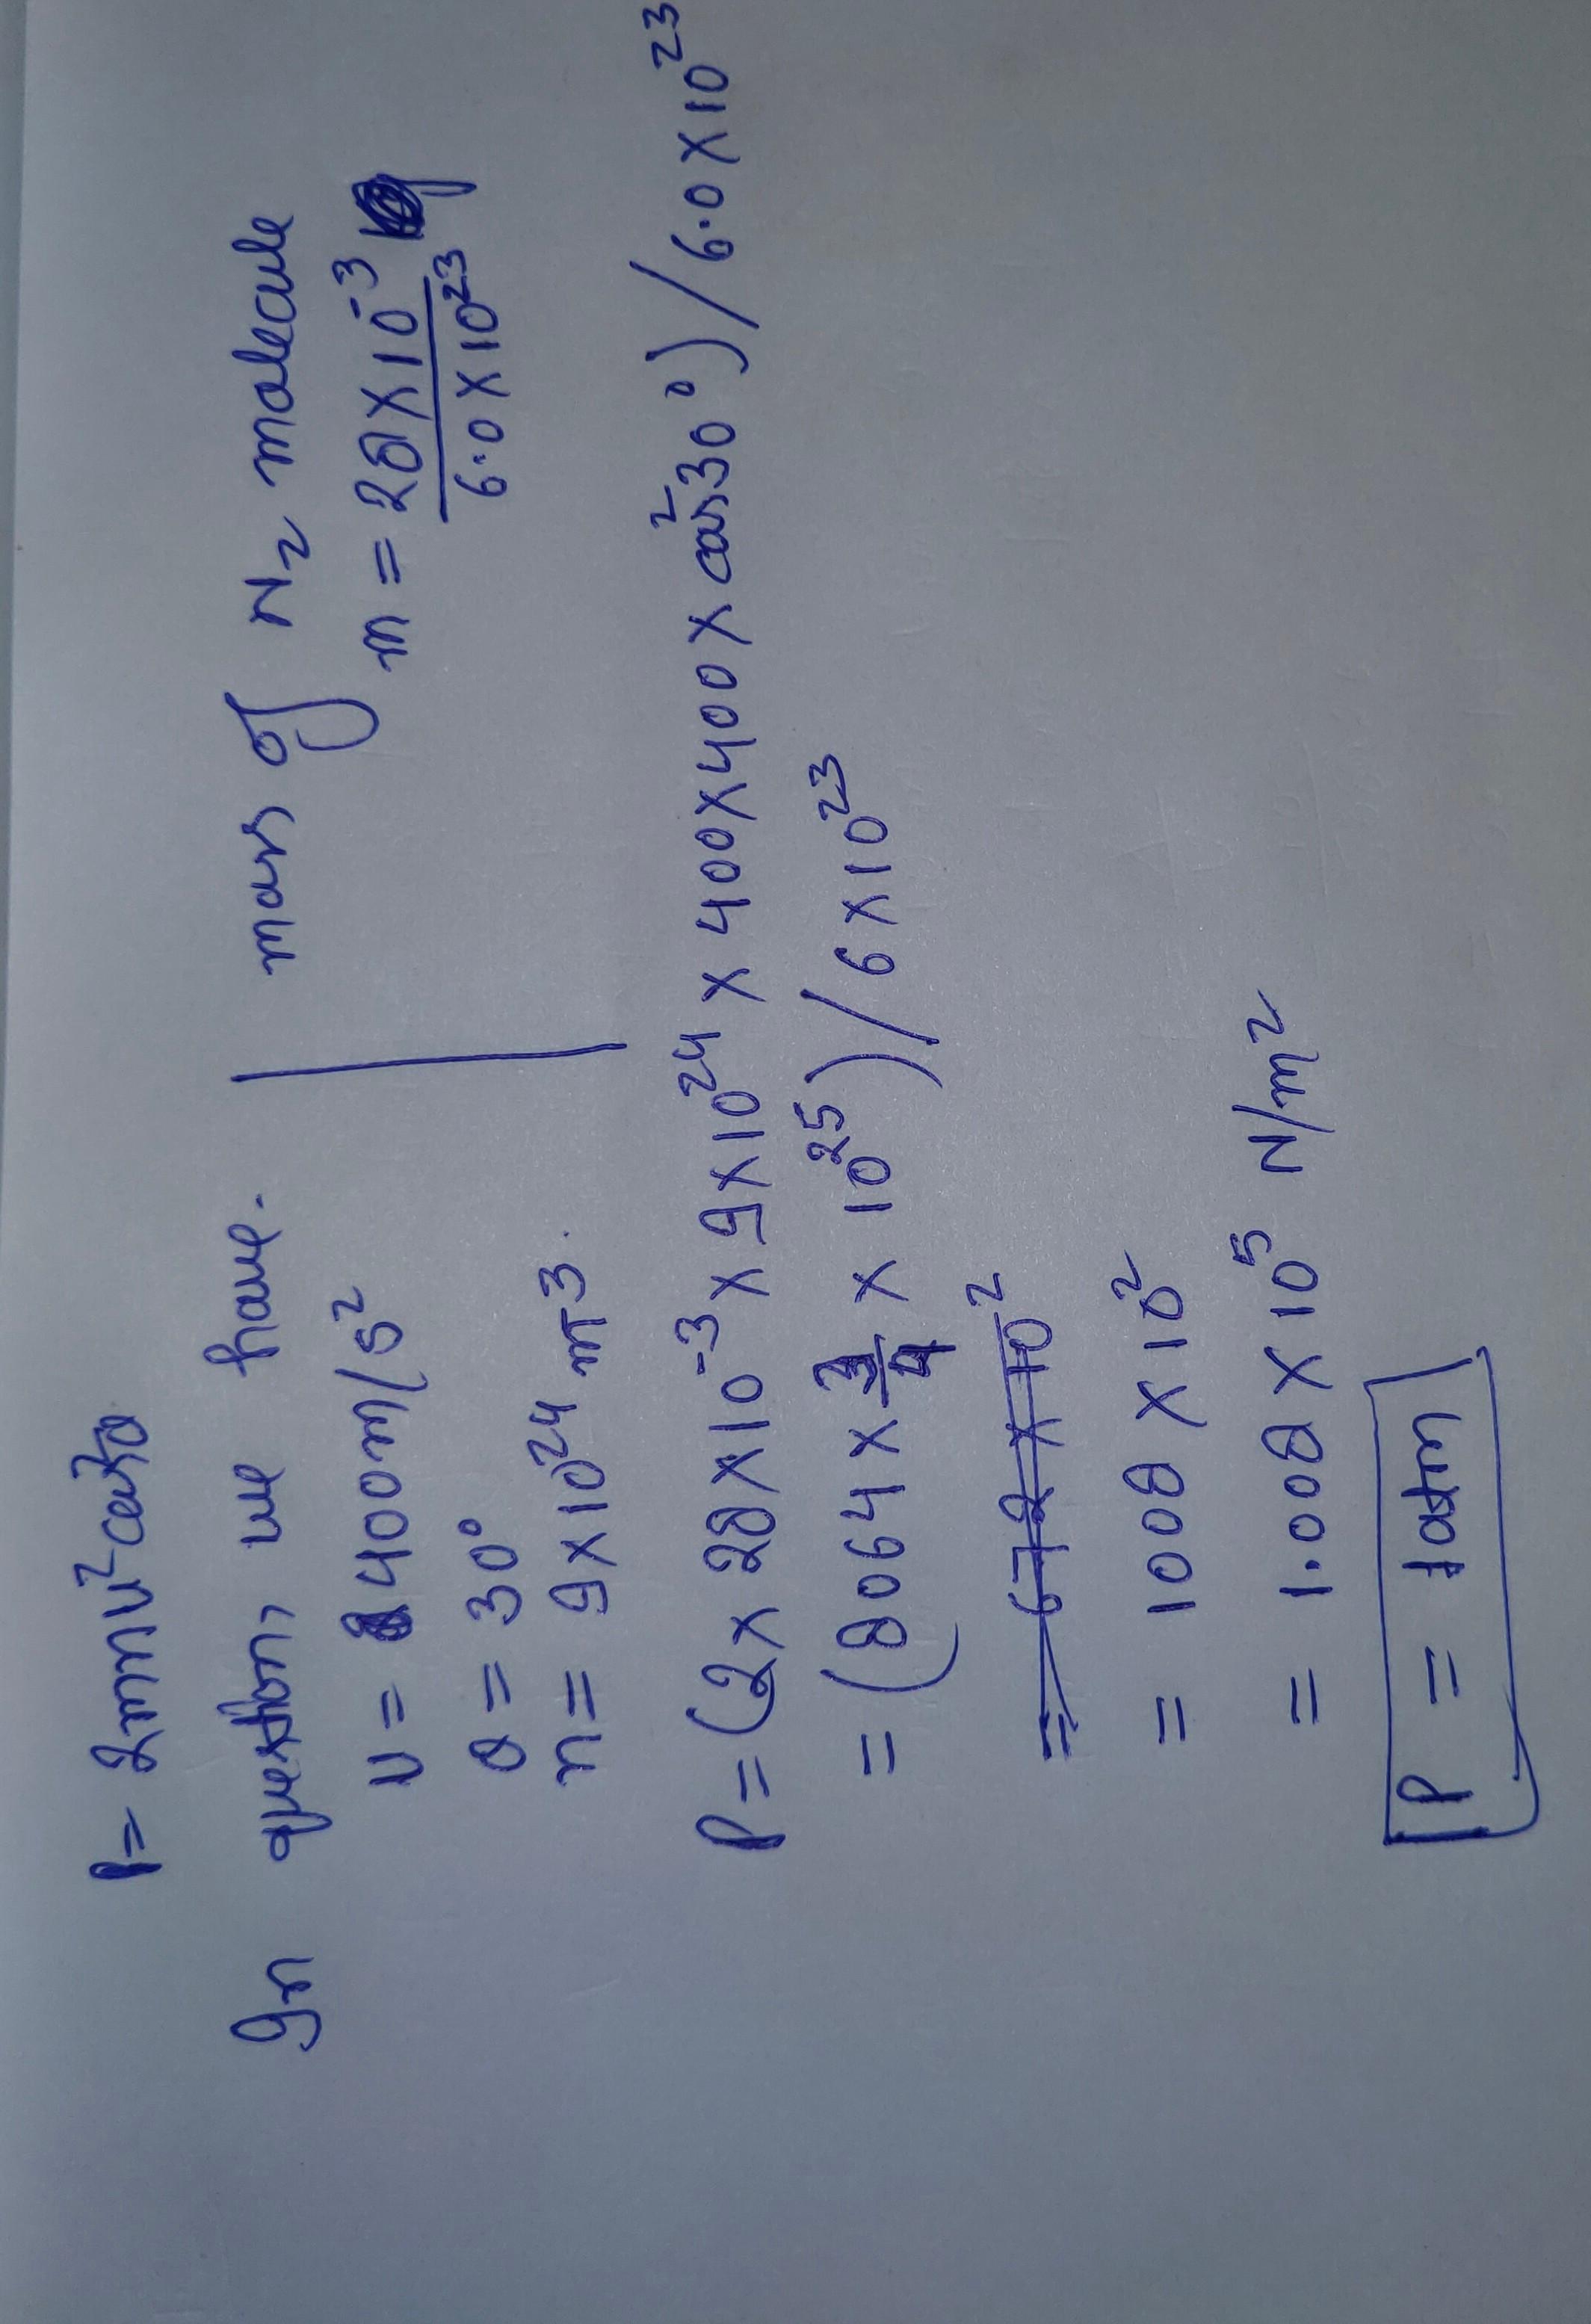 P = 2mnv²cos²θ
In question, we have.
v = 400m/s²
θ = 30°
n = 9×10²⁴ m⁻³.
mass of N₂ molecule
m = 28×10⁻³ / 6.0×10²³
P = (2×28×10⁻³×9×10²⁴×400×400×cos²30°)/6.0×10²³
= (8064×3/4×10²⁵)/6×10²³
= 672×10²
= 1008×10²
= 1.008×10⁵ N/m²
P = 1atm